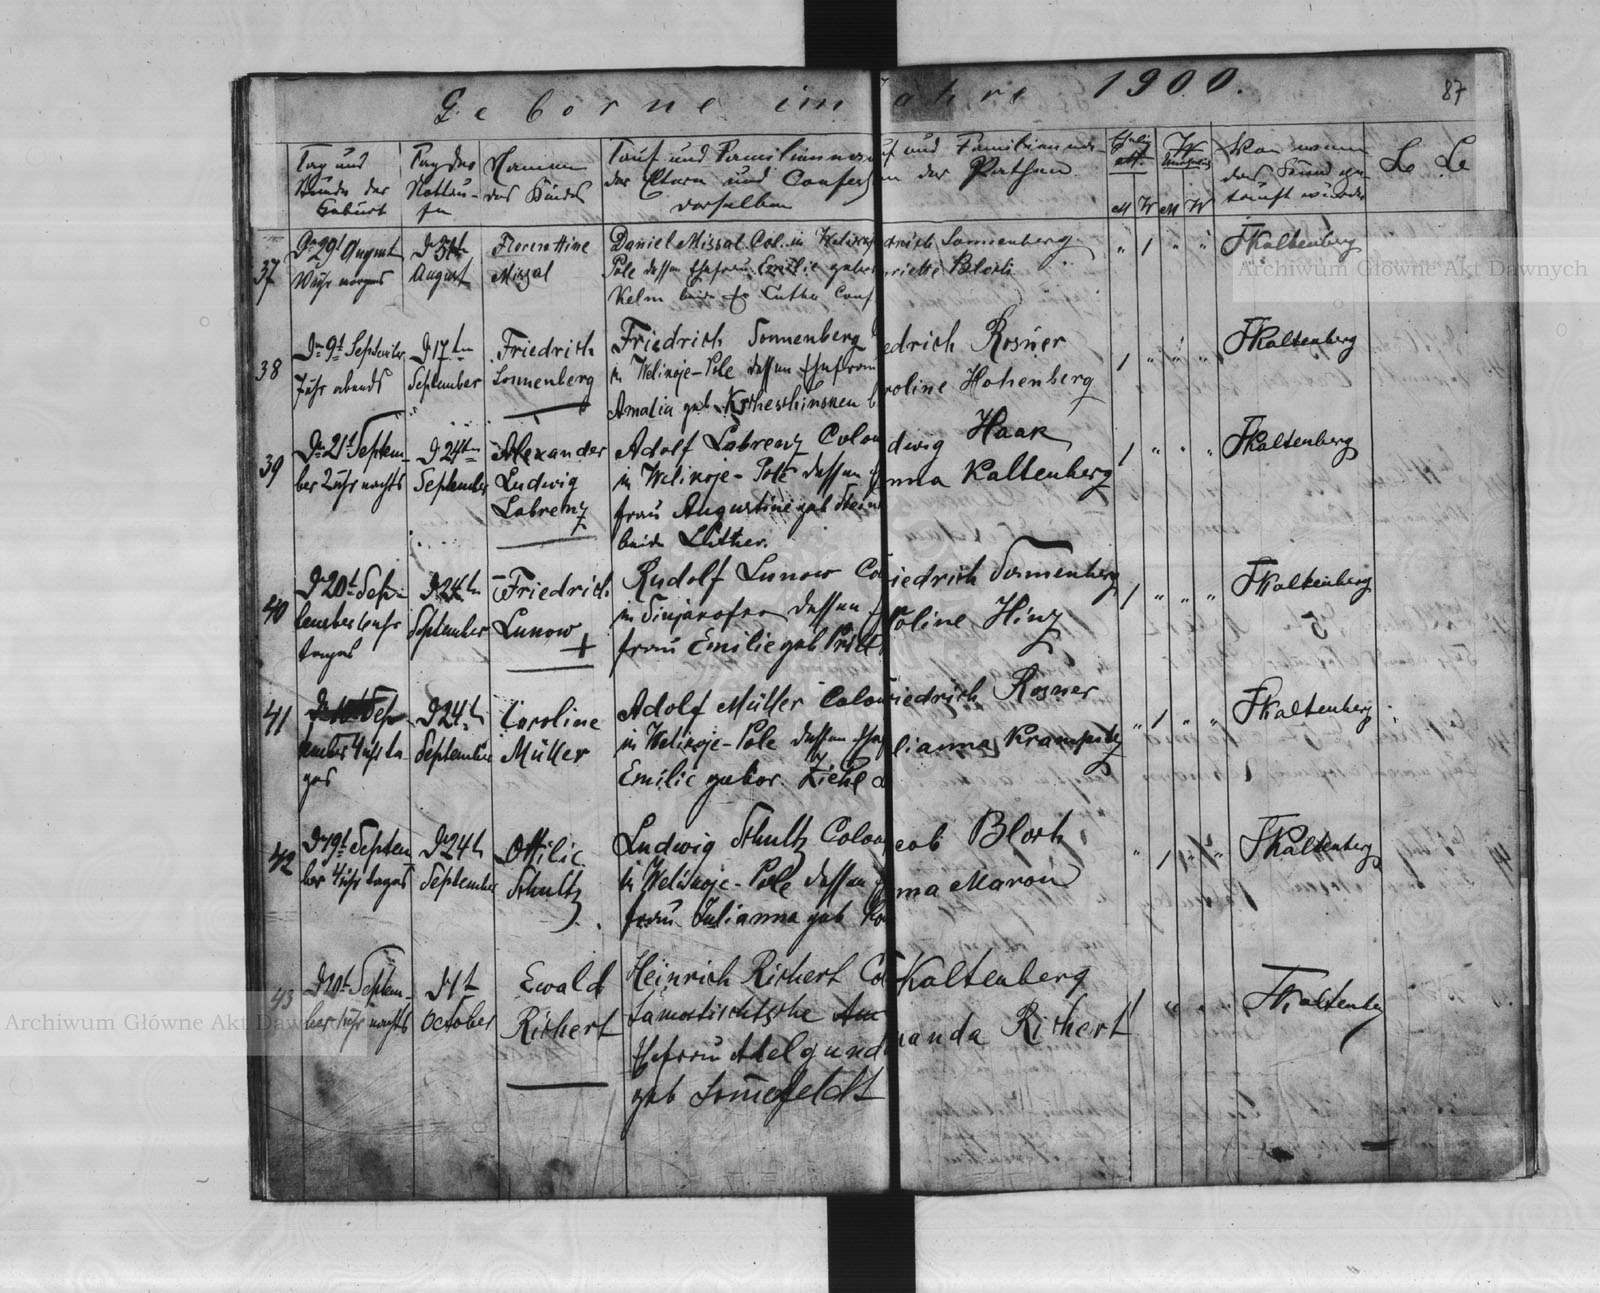 Geborne im Jahre 1900.
87
Tag und Stunde der Geburt
Tag der Nottaufe
Namen des Kindes
Tauf und Familienna
der Eltern und Confess
derselben
uf und Familienna-
n der Pathen
M W M W
Von wem
das Kind ge-
tauft wurde
37
Dn 29t August
Uhr morgens
D 31t
August
Florenttine
Missal
Daniel Missal Col. in Welikoje
Pole dessen Ehefrau Emilie gebor
Kelm beide Luther Conf
drich Sonnenberg
riette Bloch
" 1 " "
FKaltenberg
38
Dn 9t September
7 uhr abends
D 17tn
September
Friedrich
Sonnenberg
Friedrich Sonnenberg
in Welikoje-Pole dessen Ehefrau
Amalia geb.
edrich Rosner
roline Hohenberg
1 " " "
FKaltenberg
39
Dn 21t Septem-
ber 2 uhr nachts
D 24tn
September
Alexander
Ludwig
Labrenz
Adolf Labrenz Colon
in Welikoje-Pole dessen E
frau Augustine geb Stein
beide Luther.
dwig Haak
nna Kaltenberg
1 " " "
FKaltenberg
40
D 20t Sep-
tember uhr
tages
D 24tn
September
Friedrich
Lunow
+
Rudolf Lunow Co
in dessen E
frau Emilie geb
iedrich Sonnenberg
roline Hinz
1 " " "
FKaltenberg
41
Sep-
tember 4 uhr ta
ges
D 24t
September
Caroline
Müller
Adolf Müller Colon
in Welikoje-Pole dessen Ehef
Emilie gebor. Ziehl
iedrich Rosner
lianna Krampitz
" 1 " "
FKaltenberg
42
D 19t Septem
ber 4 uhr tages
D 24t
September
Ottilie
Schultz
Ludwig Schultz Colon
in Welikoje-Pole dessen E
frau Julianna geb
cob Bloch
nna
" 1
FKaltenberg
43
D 20t Septem-
ber uhr nachts
D 1t
October
Ewald
Richert
Heinrich Richert Co
Samostischtsche
Ehefrau Adelgund
geb Somefeldt
Kaltenberg
manda Richert
1 " " "
FKaltenberg
Archiwum Główne Akt Dawnych
Archiwum Główne Akt Dawnych